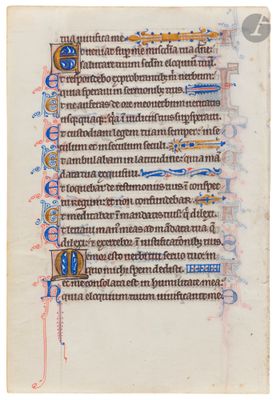 tua uiuifica me
Et ueniat sup me miscdia tua dne
salutare tuum scdm eloquium tuu
Et respondebo exprobrantib; m uerbum
quia speraui in sermonib; tuis
Et ne auferas de ore meo uerbum ueritatis
usqueqaq; qia in iudiciis tuis supsperaui
Et custodiam legem tuam semper in se
culum et in seculum seculi
Et ambulabam in latitudine quia man
data tua exquisiui
Et loquebar de testimoniis tuis in conspec
tu regum et non confundebar
Et meditabar in mandatis tuis q dilexi
Et leuaui man meas ad mandata tua q
dilexi et exercebor in iustificationib; tuis
Memor esto uerbi tui seruo tuo in
quo michi spem dedisti
Hec me consolata est in humilitate mea
quia eloquium tuum uiuificauit me